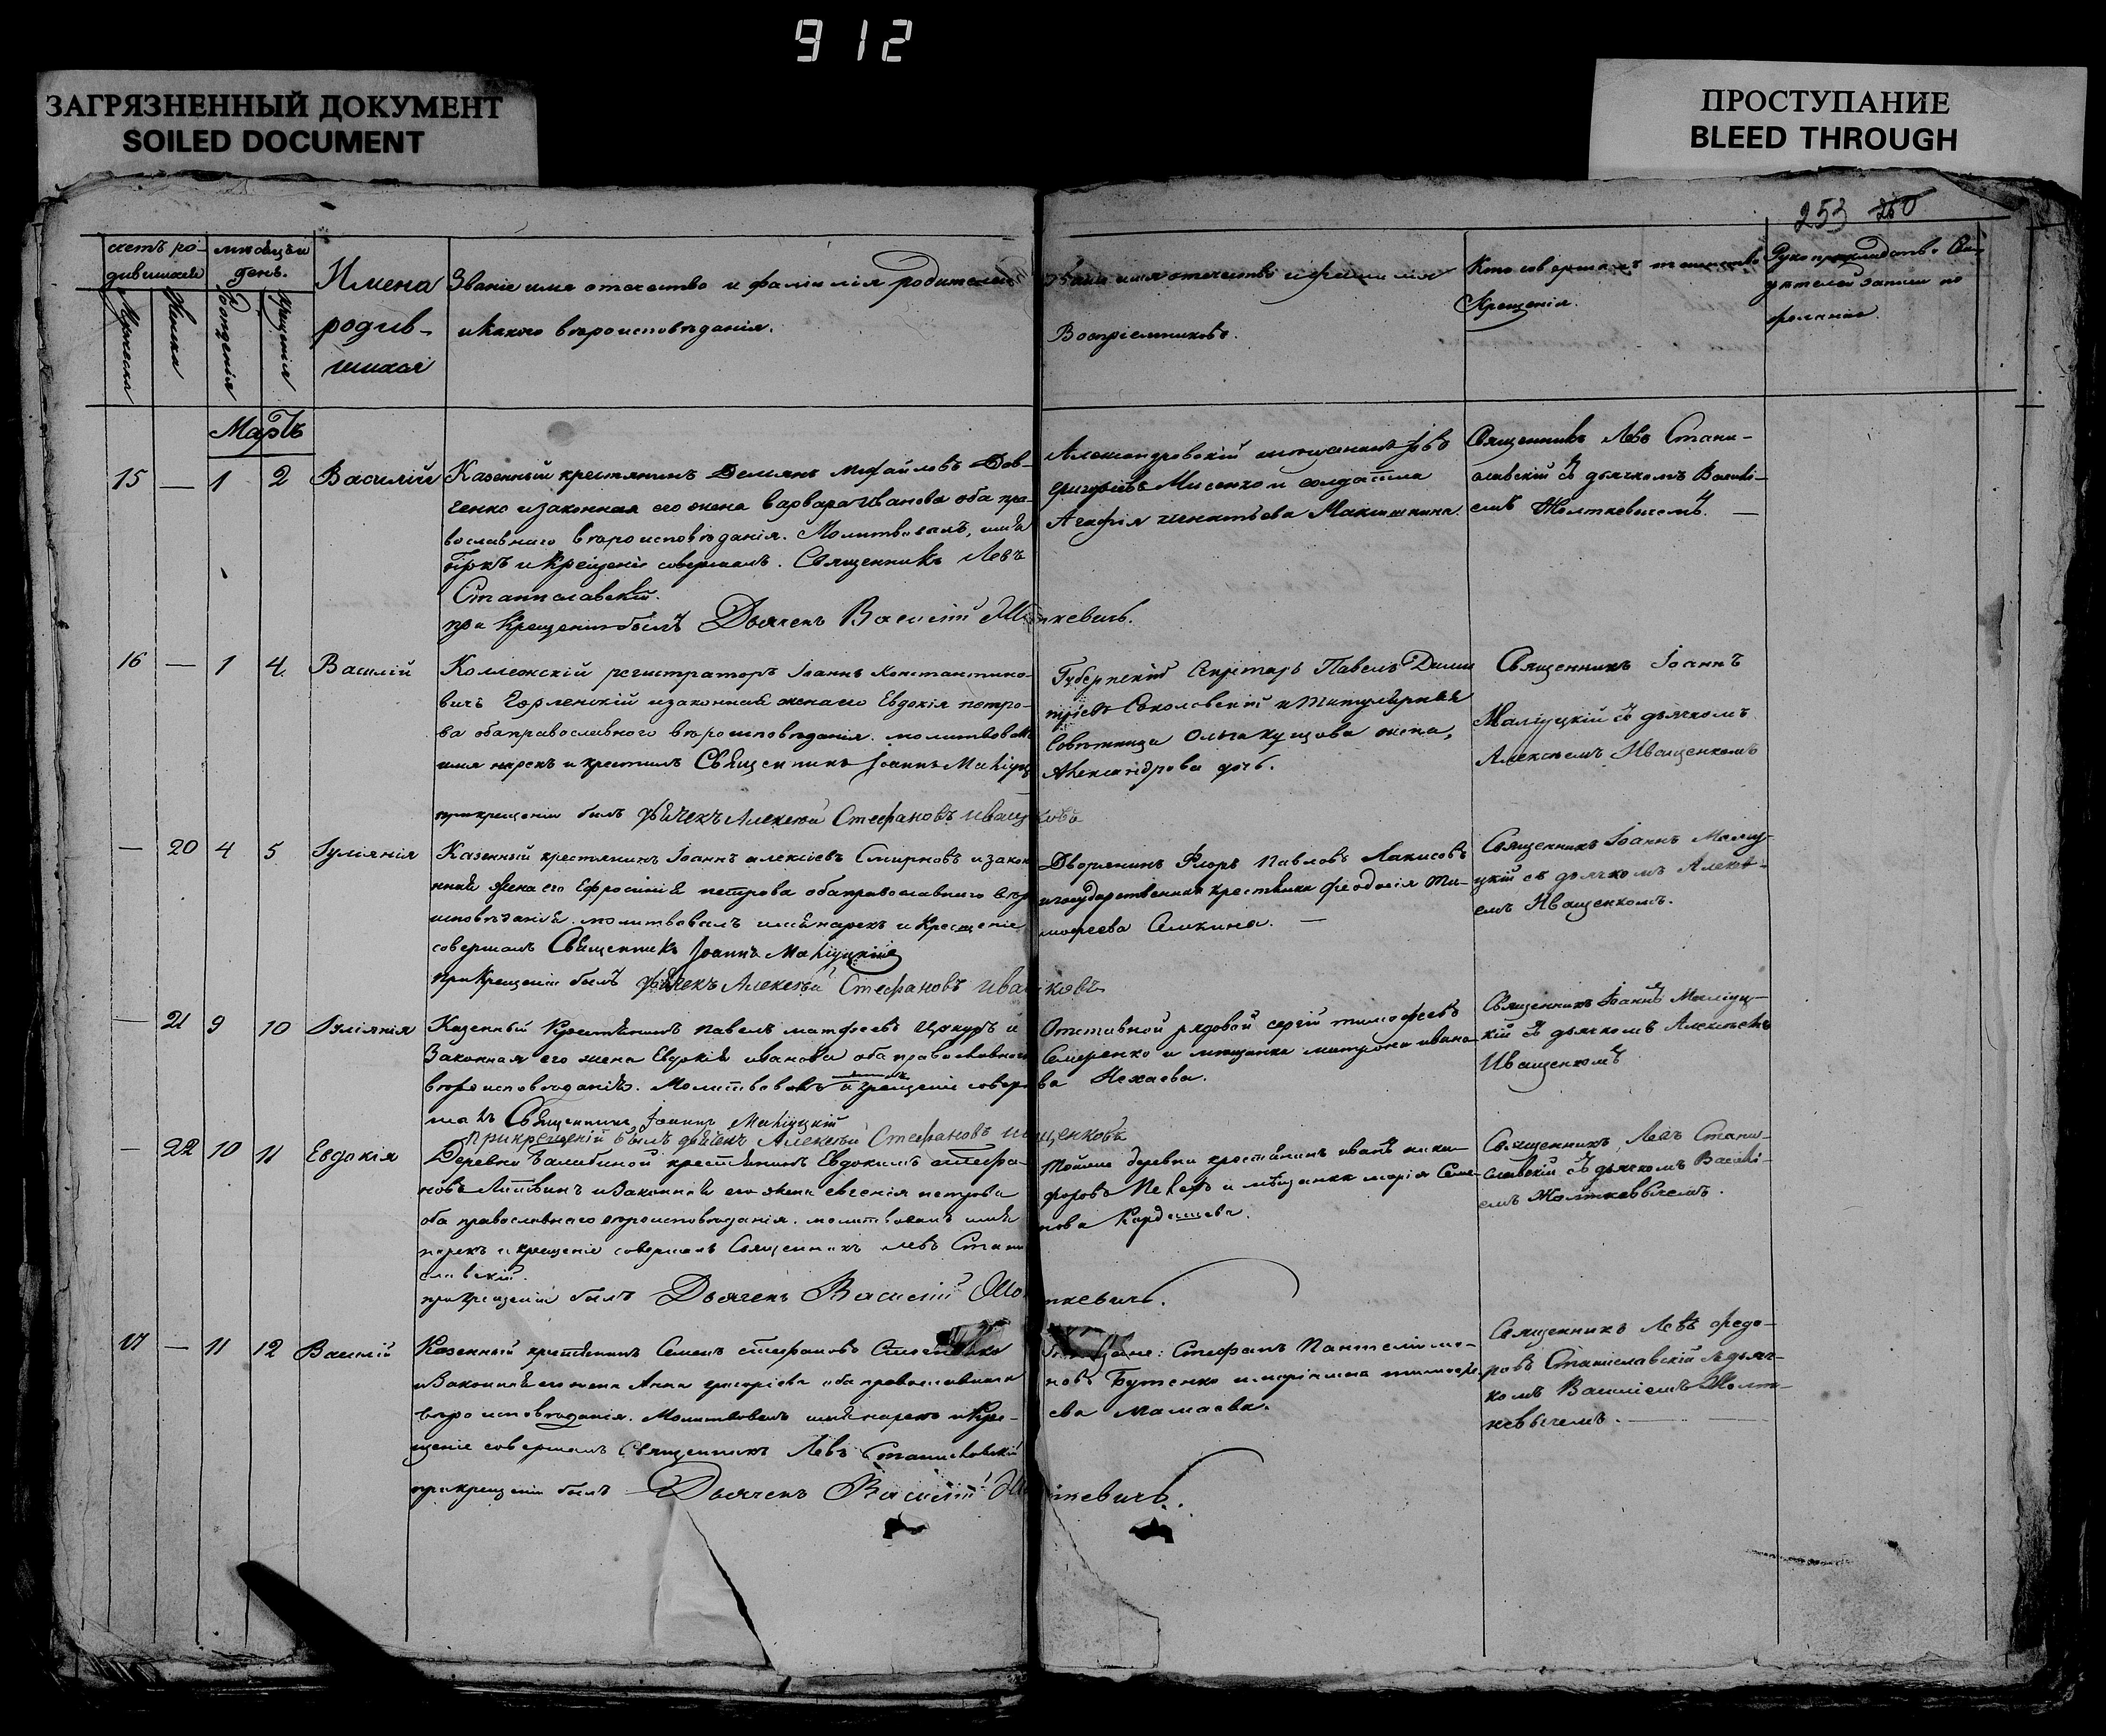 912
ЗАГРЯЗНЕННЫЙ ДОКУМЕНТ
SOILED DOCUMENT
ПРОСТУПАНИЕ
BLEED THROUGH
253 250
счетъ ро-
дившихся
мѣсяцъ и
день.
Мужеска
Женска
Рожденія
Крещенія
Имена
родив-
шихся
Званіе имя отечество и фамилія родителей
и какого вѣроисповѣданія.
Званіе имя отечество и фамилія
Воспріемниковъ.
Кто совершалъ таинство
Крещенія.
Рукоприкладство Сви-
дѣтелей записи по
желанію.
Мартъ
15 — 1 2 Василій
Казенный крестянинъ Демянъ Михайловъ Дов-
генко и законная его жена Варвара Иванова оба пра-
вославнаго вѣроисповѣданія. Молитвовалъ, имя
нарекъ и Крещеніе совершалъ. Священникъ Левъ
Станиславскій.
при Крещеніи былъ Дьячекъ Василій Жолткевичъ.
Александровскій мещанинъ
Григорьевъ Мисенко и солдатка
Агафія Игнатьева
Священникъ Левъ Стани-
славскій съ дьячкомъ Василі-
емъ Жолткевичемъ. —
16 — 1 4 Василій
Коллежскій регистраторъ Іоаннъ Константино-
вичъ и законная жена его Евдокія Петро-
ва оба православного вѣроисповѣданія. молитвовалъ
имя нарекъ и крестилъ Священникъ Іоаннъ Малцуцкій
при крещеніи былъ дьячекъ Алексѣй Стефановъ Иващенковъ
Губернскій Секретарь Павелъ Дими-
тріевъ Соколовскій и Титулярная
Совѣтница Ольга жена,
Александрова дочь.
Священникъ Іоаннъ
Маліуцкій съ дьячкомъ
Алексѣемъ Иващенкомъ
— 20 4 5 Іуліянія
Казенный крестянинъ Іоаннъ Алексѣевъ Смирновъ и закон-
ная жена его Ефросинія Петрова оба православнаго вѣро-
исповѣданія. молитвовалъ имя нарекъ и Крещеніе
совершалъ Священникъ Іоаннъ Маліуцкій
при Крещеніи былъ дьячекъ Алексѣй Стефановъ Иващенковъ
Дворянинъ Флоръ Павловъ Лакисовъ
и государственная крестянка Феодосія Ти-
мофеева Семкина. —
Священникъ Іоаннъ Маліу-
цкій съ дьячкомъ Алексѣ-
емъ Иващенкомъ.
— 21 9 10 Іуліянія
Казенный Крестянинъ Павелъ Матфеевъ и
Законная его жена Евдокія Иванова оба православнаго
вѣроисповѣданія. Молитвовалъ и крещеніе совер-
шалъ Священникъ Іоаннъ Маліуцкій
При крещеніи былъ дьячекъ Алексѣй Стефановъ Иващенковъ
Отставной рядовой Сергій Тимофеевъ
Семеренко и мещанка Матрона Ивано-
ва Нехаева.
Священникъ Іоаннъ Маліуц-
кій съ дьячкомъ Алексѣемъ
Иващенкомъ
— 22 10 11 Евдокія
Деревни крестянинъ Евдокимъ Стефа-
новъ Литвинъ и Законная его жена Евгенія Петрова
оба православнаго вѣроисповѣданія. молитвовалъ имя
нарекъ и крещеніе совершалъ Священникъ Левъ Стани-
славскій.
при крещеніи былъ Дьячекъ Василій Жолткевичъ.
Тойже деревни крестянинъ Иванъ Ники-
форовъ и мѣщанка Марія Семе-
нова Кардашева.
Священникъ Левъ Стани-
славскій съ дьячкомъ Василі-
емъ Жолткевичемъ.
17 — 11 12 Василій
Казенный крестянинъ Семенъ Стефановъ
и Законная его жена Анна Григорьева оба православнаго
вѣроисповѣданія. Молитвовалъ имя нарекъ и Кре-
щеніе совершалъ Священникъ Левъ Станиславскій
при крещеніи былъ Дьячекъ Василій Жолткевичъ.
Стефанъ Пантелимо-
новъ Бутенко и Маріамна Тимофе-
ева Мамаева.
Священникъ Левъ Федо-
ровъ Станиславскій съ дьяч-
комъ Василіемъ Жолт-
кевичемъ. —